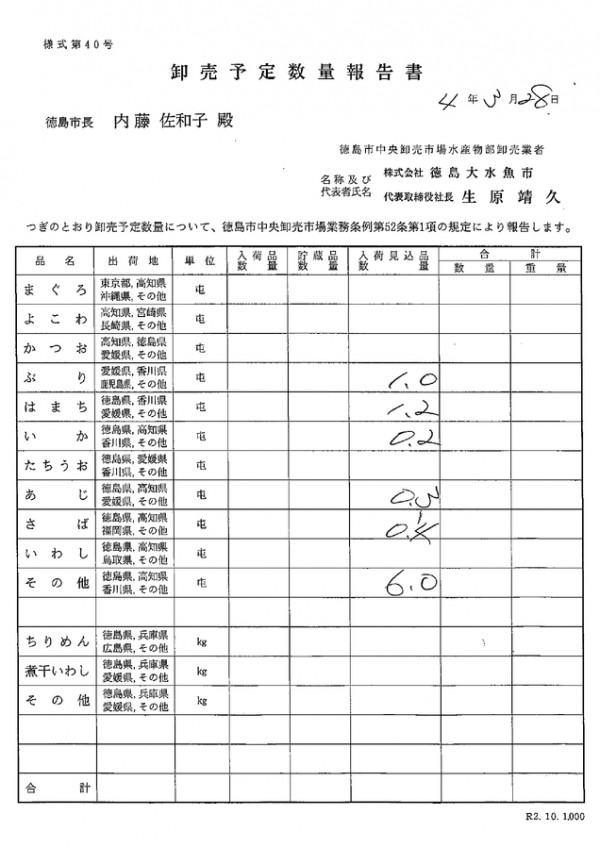 様式第40号
卸売予定数量報告書
4年3月28日
徳島市長 内藤 佐和子 殿
徳島市中央卸売市場水産物部卸売業者
名称及び 株式会社 徳島大水魚市
代表者氏名 代表取締役社長 生原靖久
つぎのとおり卸売予定数量について、徳島市中央卸売市場業務条例第52条第1項の規定により報告します。
品名 出荷地 単位 入荷品数量 貯蔵品数量 入荷見込品数量 合計
数量 重量
まぐろ 東京都,高知県 沖縄県,その他 屯
よこわ 高知県,宮崎県 長崎県,その他 屯
かつお 高知県,徳島県 愛媛県,その他 屯
ぶり 愛媛県,香川県 鹿児島県,その他 屯 1.0
はまち 徳島県,香川県 愛媛県,その他 屯 1.2
いか 徳島県,高知県 香川県,その他 屯 0.2
たちうお 徳島県,愛媛県 香川県,その他 屯
あじ 徳島県,高知県 愛媛県,その他 屯 0.3
さば 徳島県,高知県 福岡県,その他 屯
いわし 徳島県,高知県 鳥取県,その他 屯
その他 徳島県,高知県 香川県,その他 屯 6.0
ちりめん 徳島県,兵庫県 広島県,その他 kg
煮干いわし 徳島県,兵庫県 愛媛県,その他 kg
その他 徳島県,兵庫県 愛媛県,その他 kg
合計
R2.10.1,000